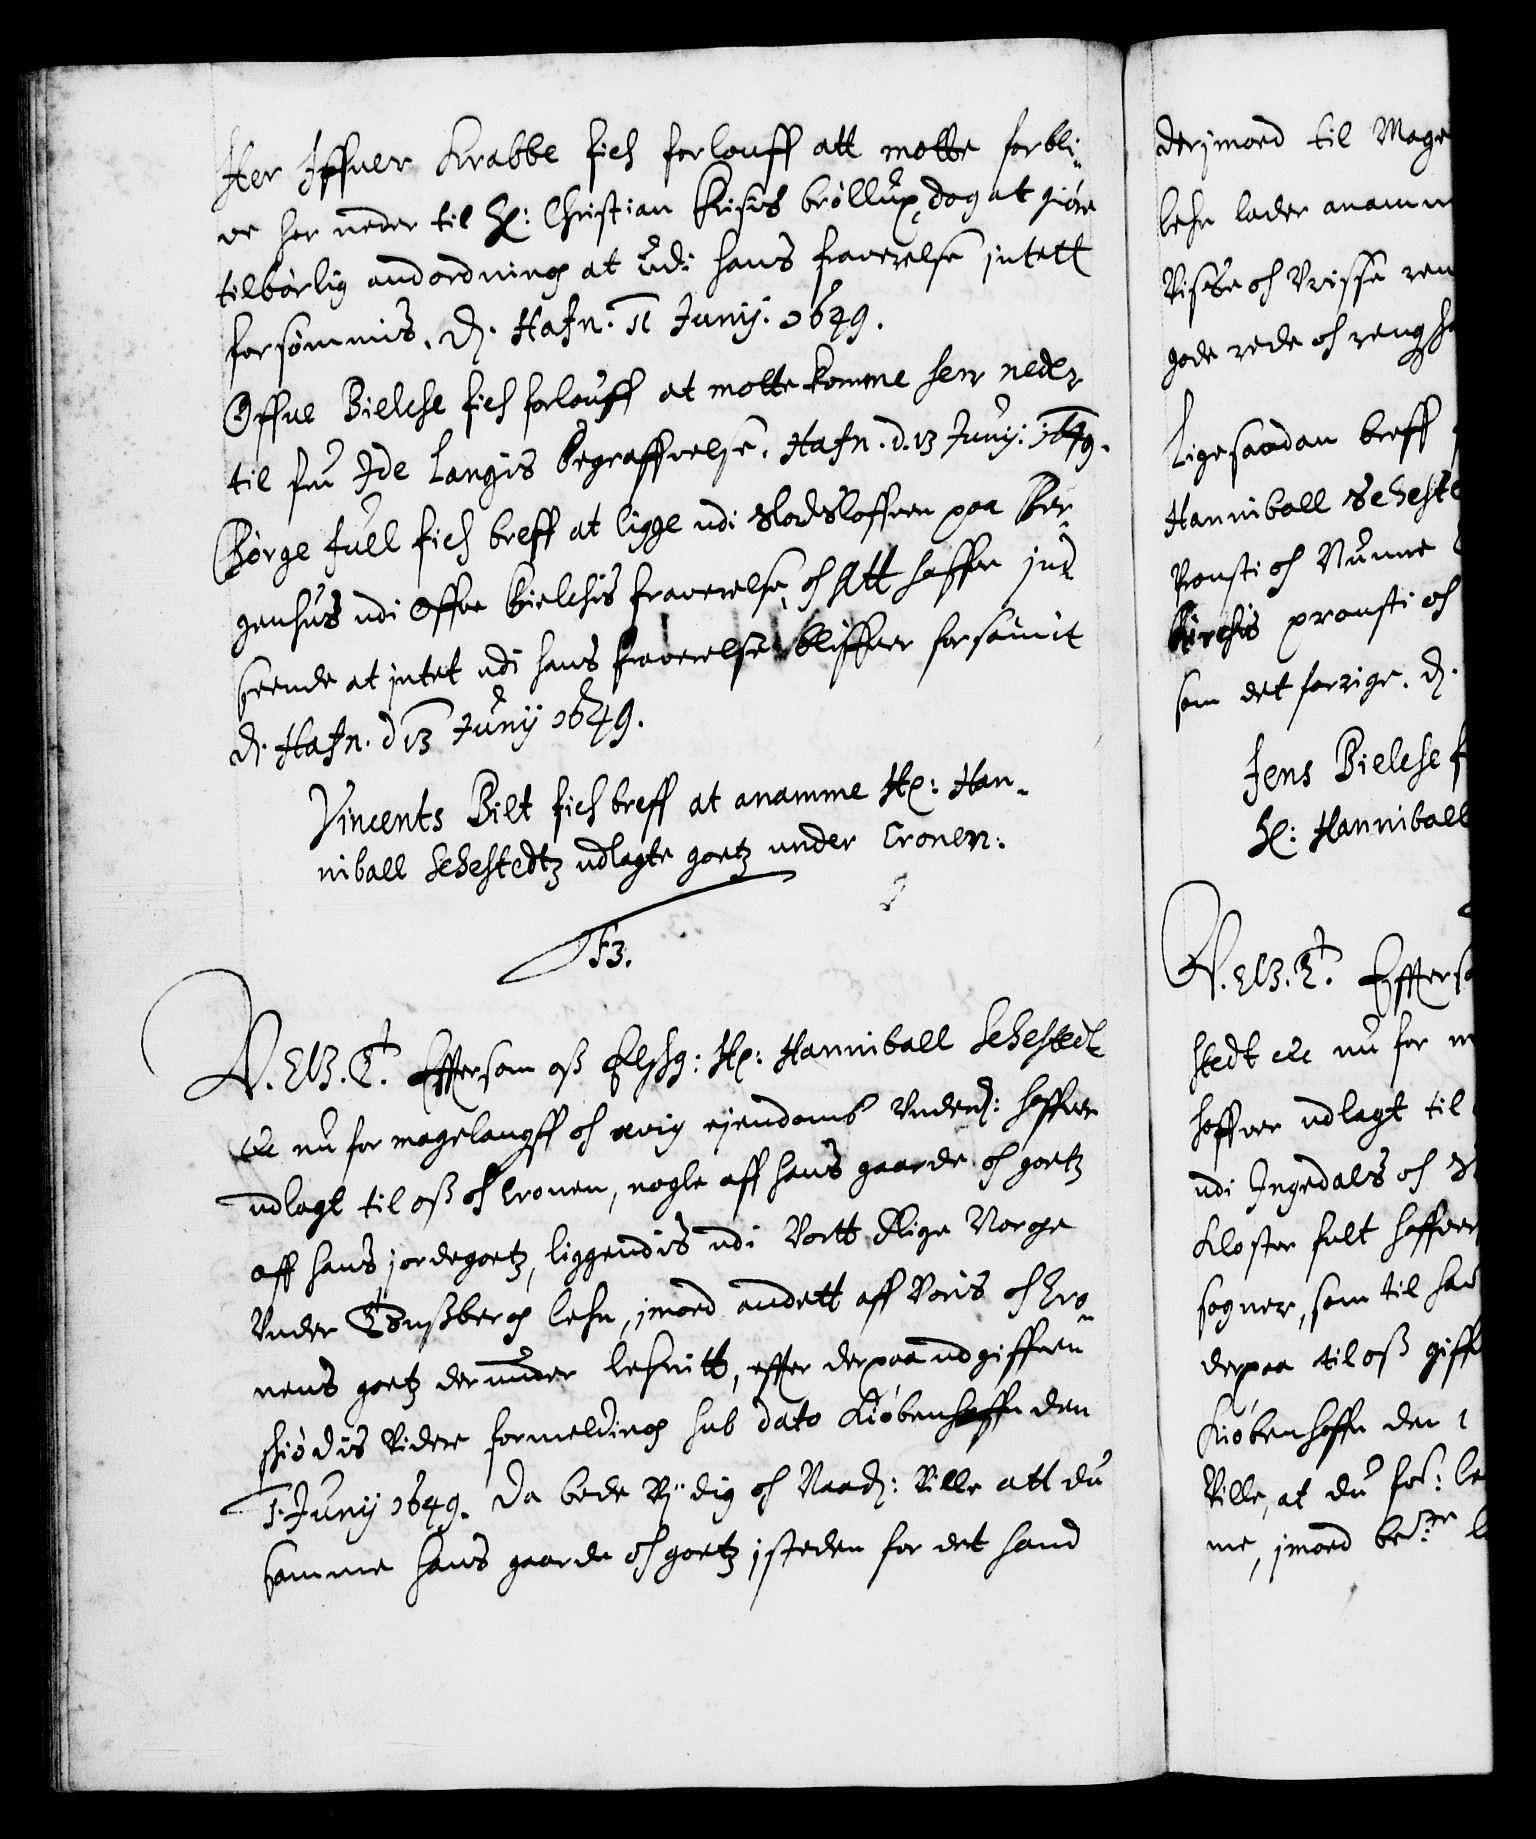 Her Iffuer Krabbe fich forlouff att motte forbli-
ve her neder til H: Christian Friises brøllup, dog at giøre
tilbørlig andordning at udi hans fraverelse intett
forsømmis. D. Hafn. 11 Junij. 1649.
Offue Bielche fich forlouff at motte komme herr neder
til fru Ide Langis begraffvelse. Hafn. d. 13 Junij: 1649.
Børge Juel fich breff at ligge udi slodsloffven paa Ber-
genhus udi Offve Bielchis fraverelse, och Att haffve ind
seende at intet udi hans fraverelse bliffver forsømit
D. Hafn. d 13 Junij 1649.
Vincents Bilt fich breff at anamme Hr: Han-
niball Sehestedtz udlagte goetz under Cronen:
F3.
W. G. T. Eftersom oss Elschg: Hr: Hanniball Sehestedt
etc nu for magelaugff och ævig ejendomb Underd: haffver
udlagt til oss och Cronen, nogle aff hans gaarde och goetz
aff hans jordegoetz, liggendis udi Vortt Rige Norge
Under Tønssberg lehn, imod andett aff Voris och Cro-
nens goetz derunder besnitt, effter derpaa udgiffven
schiødis Videre formelding sub dato Kiøbenhaffn den
1. Junij 1649. Da bede Vj dig och Naad: Ville att du
samme hans gaarde och goetz isteden for det hand
derimod til Mage
lehn lader anamm
Visse och Uvisse ren
gode rede och rengsha
Ligesaadan breff
Hanniball Sehest
Provsti och Numme
Kirchis provsti och
som det forrige. D.
Jens Bielche f
H: Hanniball
W. G. T. Efftersa
stedt etc nu for m
haffver udlagt til
udi Jngedals och
Kloster fult haffver
sogner, som til han
derpaa til oss giff
Kiøbenhaffn den 1
Ville, at du for: le
me, imod be.te l